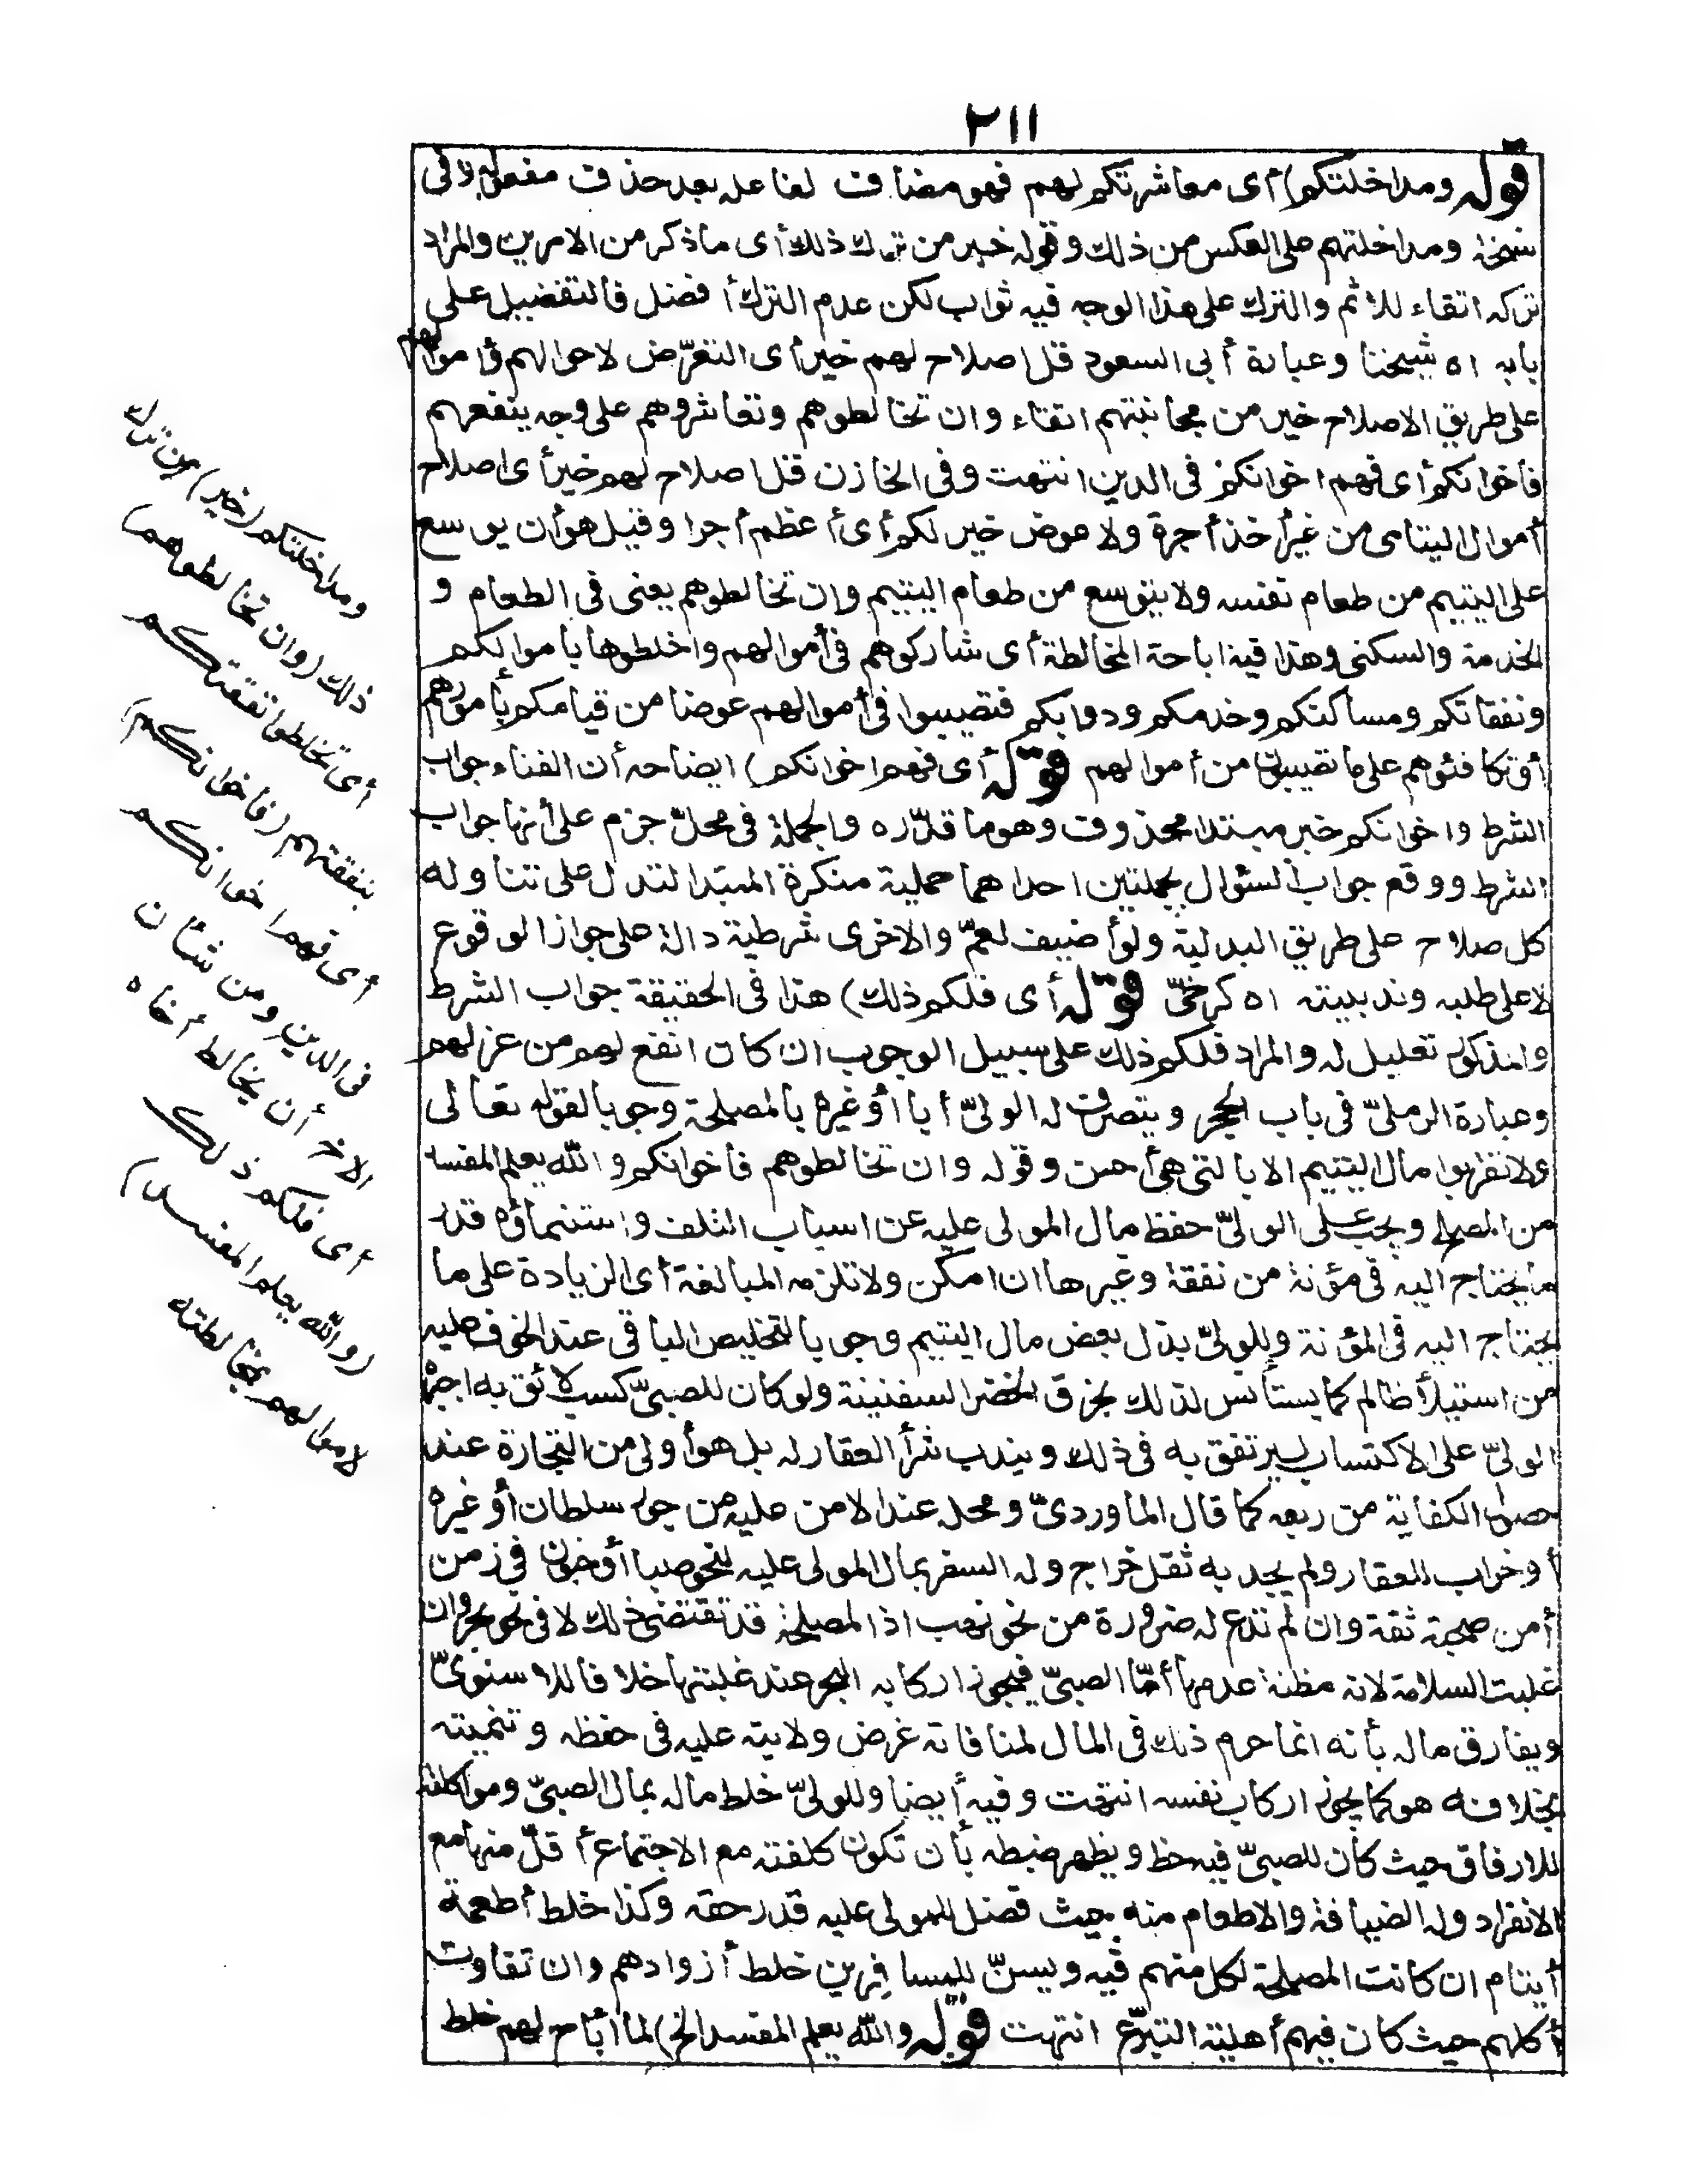 ٢١١
قوله ومداخلتكم) أى معاشرتكم لهم فهو مضاف لفاعله بعد حذف مفعوله وفى
نسخة ومداخلتهم على العكس من ذلك وقوله خير من ترك ذلك أى ماذكر من الامرين والمراد
تركه اتقاء للاثم والترك على هذا الوجه فيه ثواب لكن عدم الترك أفضل فالتفضيل على
بابه اه شيخنا وعبارة أبى السعود قل اصلاح لهم خير أى التعرّض لاحوالهم وأموالهم
على طريق الاصلاح خير من مجانبتهم اتقاء وان تخالطوهم وتعاشروهم على وجه ينفعهم
فاخوانكم أى فهم اخوانكم فى الدين انتهت وفى الخازن قل اصلاح لهم خير أى اصلاح
أموال اليتامى من غير أخذ أجرة ولا عوض خير لكم أى أعظم أجرا وقيل هو أن يوسع
على اليتيم من طعام نفسه ولا يتوسع من طعام اليتيم وان تخالطوهم يعنى فى الطعام و
الخدمة والسكنى وهذا فيه اباحة المخالطة أى شاركوهم فى أموالهم واخلطوها باموالكم
ونفقاتكم ومساكنكم وخدمكم ودوابكم فتصيبوا فى أموالهم عوضا من قيامكم بأمورهم
أو تكافئوهم على ما تصيبون من أموالهم قوله أى فهم اخوانكم) ايضاحه أن الفاء جواب
الشرط واخوانكم خبر مبتدا محذوف وهو ما قدّره والجملة فى محلّ جزم على أنها جواب
الشرط ووقع جواب السؤال بجملتين احداهما حملية منكرة المبتدا لتدل على تناوله
كل صلاح على طريق البدلية ولو أضيف لعمّ والاخرى شرطية دالة على جواز الوقوع
لا على طلبه وندبيته اه كرخىّ قوله أى فلكم ذلك) هذا فى الحقيقة جواب الشرط
والمذكور تعليل له والمراد فلكم ذلك على سبيل الوجوب ان كان انفع لهم من عزلهم
وعبارة الرملىّ فى باب الحجر ويتصرف له الولىّ أبا أو غيره بالمصلحة وجوبا لقوله تعالى
ولا تقربوا مال اليتيم الا بالتى هى أحسن وقوله وان تخالطوهم فاخوانكم والله يعلم المفسد
من المصلح ويجب على الولىّ حفظ مال المولى عليه عن اسباب التلف واستنماؤه قدر
ما يحتاج اليه فى مؤنة من نفقة وغيرها ان امكن ولا تلزمه المبالغة أى الزيادة على ما
يحتاج اليه فى المؤنة وللولىّ بذل بعض مال اليتيم وجوبا لتخليص الباقى عند الخوف عليه
من استيلأ ظالم كما يستأنس لذلك بخرق الخضر السفينة ولو كان للصبىّ كسب لائق به اجبره
الولىّ على الاكتساب ليرتفق به فى ذلك ويندب شرأ العقار له بل هو أولى من التجارة عند
حصول الكفاية من ريعه كما قال الماوردىّ ومحله عند الامن عليه من جور سلطان أو غيره
أو خراب للعقار ولم يجد به ثقل خراج وله السفر بمال المولى عليه لنحو صبا أو جنون فى زمن
أمن صحبة ثقة وان لم تدع له ضرورة من نحو نهب اذ المصلحة قد تقتضى ذلك لا فى نحو بحر وان
غلبت السلامة لانه مظنة عدمها أمّا الصبىّ فيجوز اركابه البحر عند غلبتها خلافا للاسنوىّ
ويفارق ماله بأنه انما حرم ذلك فى المال لمنافاته غرض ولايته عليه فى حفظه وتنميته
بخلافه هو كما يجوز اركاب نفسه انتهت وفيه أيضا وللولىّ خلط ماله بمال الصبىّ ومواكلته
للارفاق حيث كان للصبىّ فيه حظ ويظهر ضبطه بأن تكون كلفته مع الاجتماع أقلّ منها مع
الانفراد وله الضيافة والاطعام منه حيث فضل للمولى عليه قدر حقه وكذا خلط أطعمة
أيتام ان كانت المصلحة لكل منهم فيه ويسنّ للمسافرين خلط أزوادهم وان تفاوت
أكلهم حيث كان فيهم أهلية التبرّع انتهت قوله والله يعلم المفسد الخ) لما أباح لهم خلط
ومداخلتكم (خير) من ترك
ذلك (وان تخالطوهم)
أى تخلطوا نفقتكم
بنفقتهم (فاخوانكم)
أى فهم اخوانكم
فى الدين ومن شأن
الاخ أن يخالط أخاه
أى فلكم ذلك
(والله يعلم المفسد)
لاموالهم بمخالطته